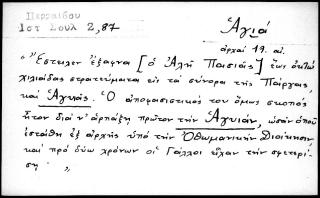 Περραιβού
Ιστ Σουλ 2,87
Ἁγιά
ἀρχαί 19. αἰ.
"Ἔστειλεν ἐξαφνα [ὁ Ἀλῆ Πασιᾶς] ἕως ὀκτὼ
χιλιάδας στρατεύματα εἰς τὰ σύνορα τῆς Πάργας,
καὶ Ἁγιᾶς. Ὁ ἀποφασιστικός του ὅμως σκοπός
ἦτον διὰ ν' ἁρπάξῃ πρῶτον τὴν Ἁγυιάν, ὡσὰν ὁποῦ
ἐστάθη ἐξ ἀρχῆς ὑπὸ τὴν Ὀθωμανικὴν Διοίκησιν
καὶ πρὸ δύω χρόνων οἱ Γάλλοι εἶχαν τὴν σφετερί-
ση "